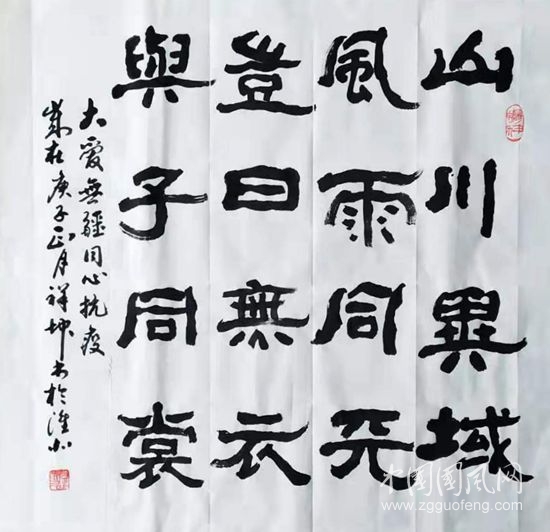 山川異域
風雨同天
豈曰無衣
與子同裳
大愛無疆同心抗疫
歲在庚子正月祥坤書於淮北
中國國風网
www.zgguofeng.com